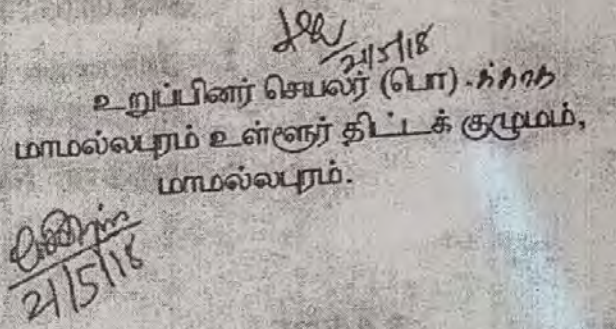 21/5/18
உறுப்பினர் செயலர் (பொ).க்காக
மாமல்லபுரம் உள்ளூர் திட்டக் குழுமம்,
மாமல்லபுரம்.
21/5/18